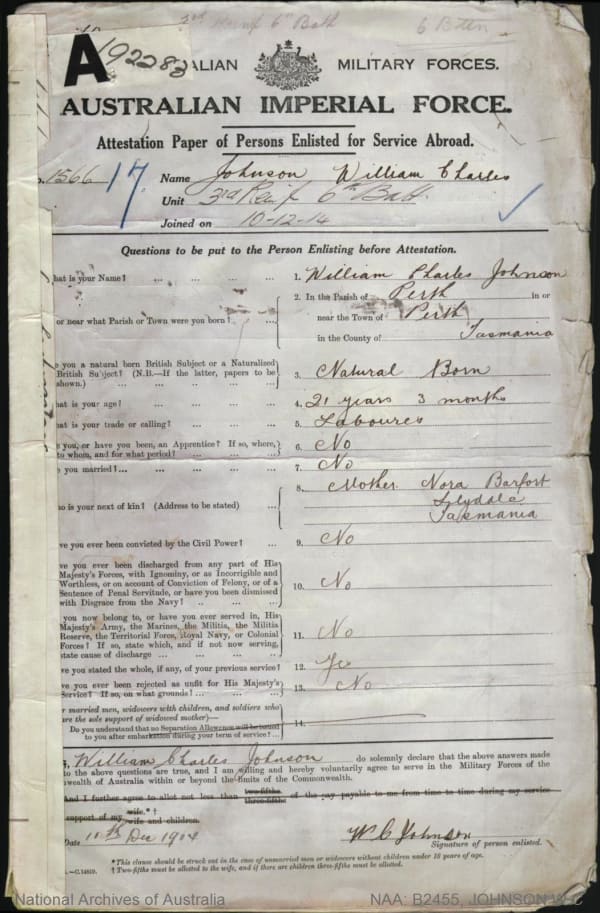 6 Battn
A 192282
ALIAN MILITARY FORCES.
AUSTRALIAN IMPERIAL FORCE.
Attestation Paper of Persons Enlisted for Service Abroad.
1566 17 Name Johnson William Charles
Unit 3rd Reinf 6th Batt.
Joined on 10-12-14
Questions to be put to the Person Enlisting before Attestation.
hat is your Name? ... ... ... ... 1. William Charles Johnson
2. In the Parish of Perth in or
or near what Parish or Town were you born? ... near the Town of Perth
in the County of Tasmania
e you a natural born British Subject or a Naturalised
British Subject? (N.B.—If the latter, papers to be
shown.) ... ... ... ... 3. Natural Born
hat is your age? ... ... ... ... 4. 21 years 3 months
hat is your trade or calling? ... ... ... 5. Labourer
e you, or have you been, an Apprentice? If so, where,
to whom, and for what period? ... ... ... 6. No
e you married?... ... ... ... ... 7. No
8. Mother Nora Barfort
ho is your next of kin? (Address to be stated) ... Lilydale
Tasmania
ve you ever been convicted by the Civil Power? ... 9. No
ve you ever been discharged from any part of His
Majesty's Forces, with Ignominy, or as Incorrigible and
Worthless, or on account of Conviction of Felony, or of a
Sentence of Penal Servitude, or have you been dismissed
with Disgrace from the Navy? .. ... ... 10. No
you now belong to, or have you ever served in, His
Majesty's Army, the Marines, the Militia, the Militia
Reserve, the Territorial Force, Royal Navy, or Colonial
Forces? If so, state which, and if not now serving,
state cause of discharge ... ... ... ... 11. No
ve you stated the whole, if any, of your previous service? 12. Yes
ve you ever been rejected as unfit for His Majesty's
Service? If so, on what grounds? ... ... ... 13. No
r married men, widowers with children, and soldiers who
are the sole support of widowed mother)—
Do you understand that no Separation Allowance will be issued
to you after embarkation during your term of service?... 14.
I, William Charles Johnson do solemnly declare that the above answers made
to the above questions are true, and I am willing and hereby voluntarily agree to serve in the Military Forces of the
wealth of Australia within or beyond the limits of the Commonwealth.
And I further agree to allot not less than two-fifths three-fifths of the pay payable to me from time to time during my service
support of my wife.* † wife and children.
Date 10th Dec 1914 W C Johnson
Signature of person enlisted.
*This clause should be struck out in the case of unmarried men or widowers without children under 18 years of age.
—C.14819. † Two-fifths must be allotted to the wife, and if there are children three-fifths must be allotted.
National Archives of Australia NAA: B2455, JOHNSON W C